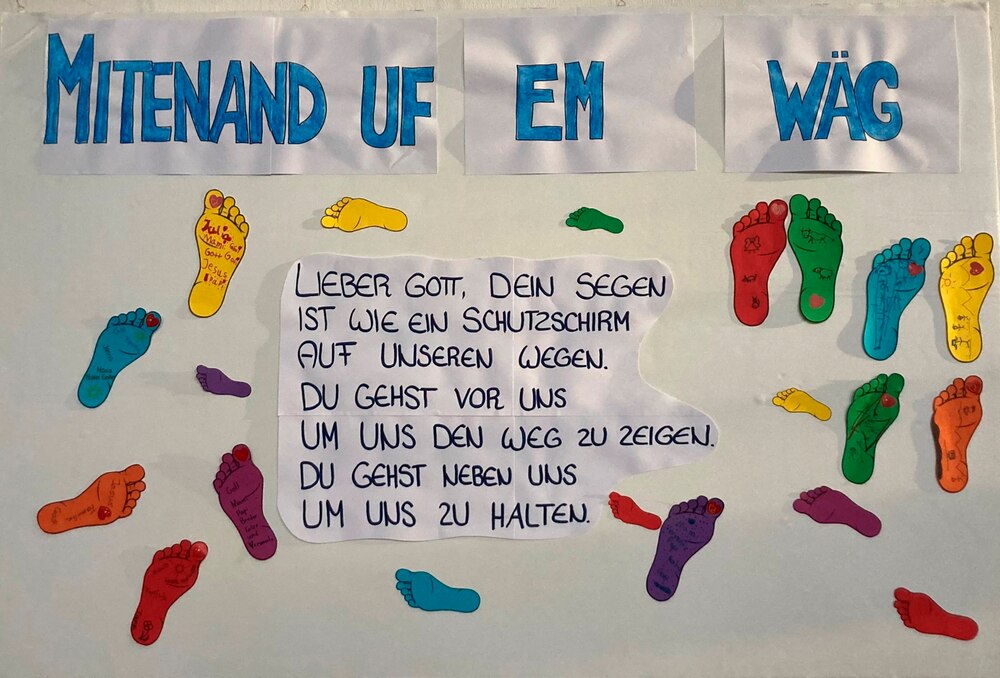 MITENAND UF EM WÄG
LIEBER GOTT, DEIN SEGEN
IST WIE EIN SCHUTZSCHIRM
AUF UNSEREN WEGEN.
DU GEHST VOR UNS
UM UNS DEN WEG ZU ZEIGEN.
DU GEHST NEBEN UNS
UM UNS ZU HALTEN.
Mami
Gott
Jesus